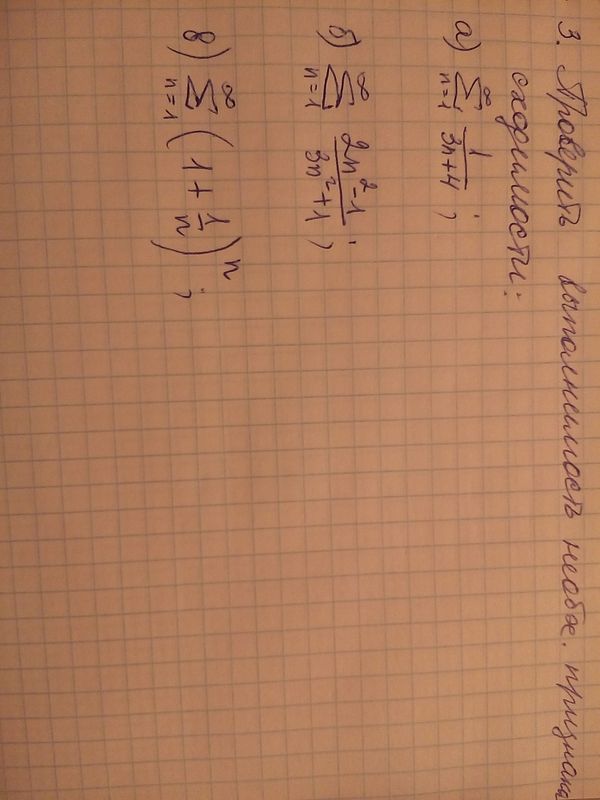 3. Проверить выполнимость необх. признака
сходимости:
а) ∞ ∑ n=1 1/(3n+4);
б) ∞ ∑ n=1 (2n²-1)/(3n²+1);
в) ∞ ∑ n=1 (1 + 1/n)ⁿ;